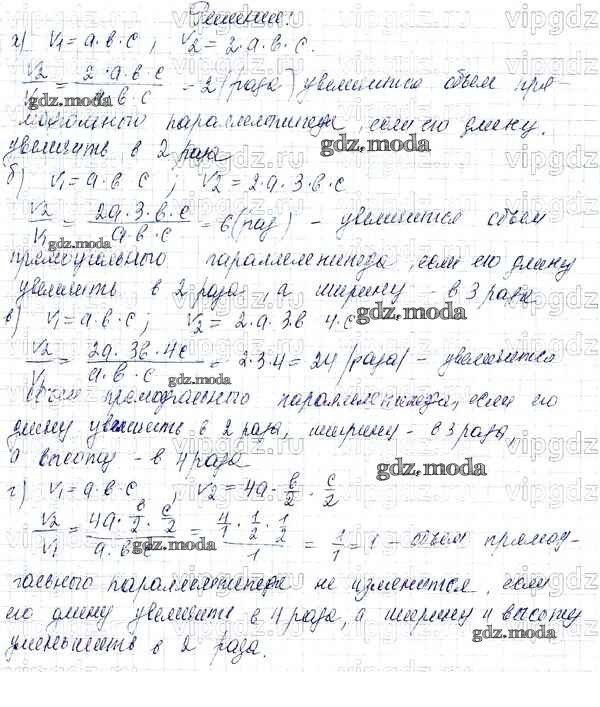 Решение:
а) V₁ = a·b·c, V₂ = 2·a·b·c.
V₂/V₁ = 2·a·b·c / a·b·c = 2 (раза) увеличится объем пря-
моугольного параллелепипеда, если его длину
увеличить в 2 раза
б) V₁ = a·b·c; V₂ = 2·a·3·b·c
V₂/V₁ = 2a·3·b·c / a·b·c = 6 (раз) – увеличится объем
прямоугольного параллелепипеда, если его длину
увеличить в 2 раза, а ширину – в 3 раза
в) V₁ = a·b·c; V₂ = 2·a·3b 4·c
V₂/V₁ = 2a·3b·4c / a·b·c = 2·3·4 = 24 (раза) – увеличится
объем прямоугольного параллелепипеда, если его
длину увеличить в 2 раза, ширину – в 3 раза,
а высоту – в 4 раза
г) V₁ = a·b·c, V₂ = 4a·b/2·c/2
V₂/V₁ = 4a·b/2·c/2 / a·b·c = 4/1·1/2·1/2 / 1 = 1/1 = 1 – объем прямоу-
гольного параллелепипеда не изменится, если
его длину увеличить в 4 раза, а ширину и высоту
уменьшить в 2 раза.
gdz.moda
vipgdz.ru